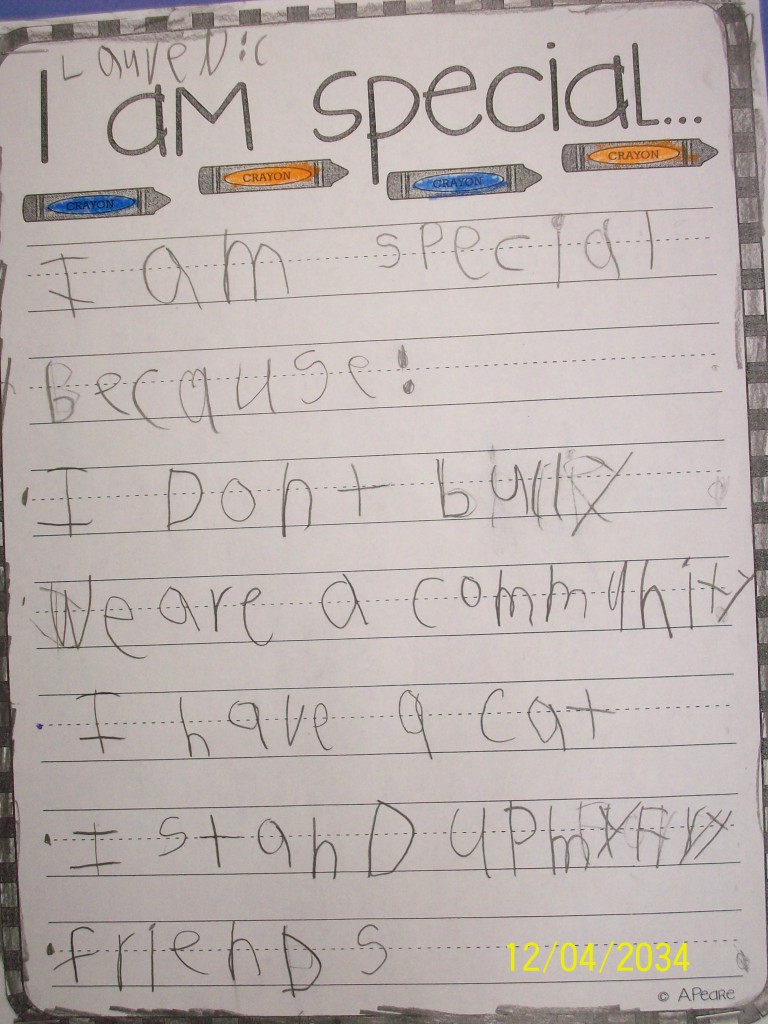 Laurenic
I am special...
CRAYON CRAYON CRAYON CRAYON
I am special
Because:
I Dont bully
We are a community
I have a cat
I stanD uP
frienDs
12/04/2034
© APeare